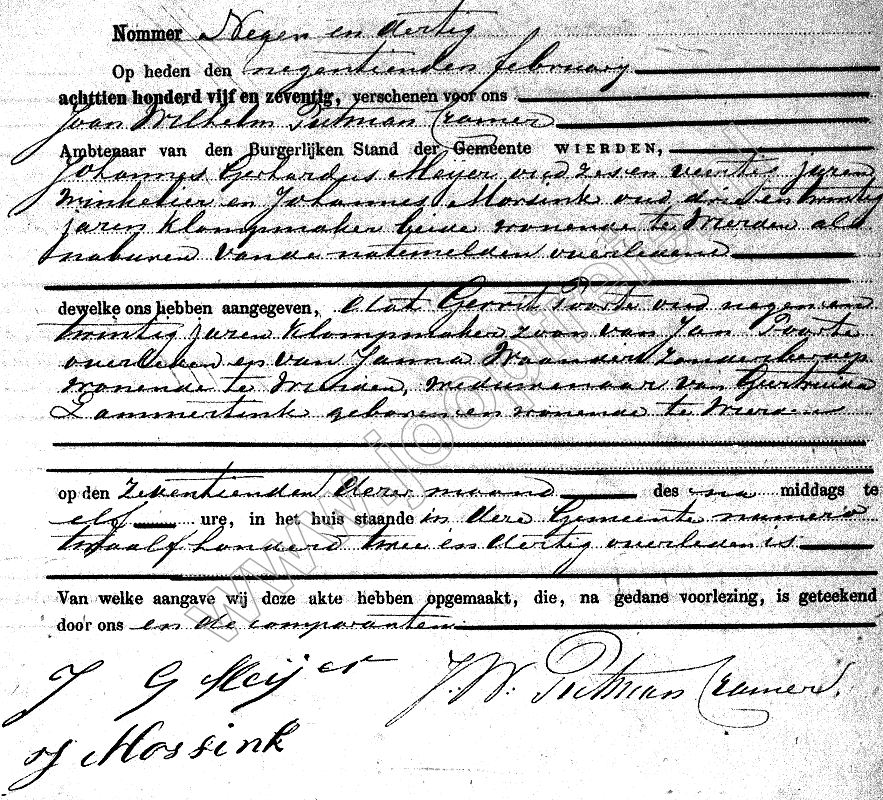 Nommer Negen en dertig
Op heden den negentienden february
achttien honderd vijf en zeventig, verschenen voor ons
Joan Wilhelm Putman Cramer
Ambtenaar van den Burgerlijken Stand der Gemeente WIERDEN,
Johannes Gerhardus Meijer oud zes en veertig jaren
winkelier en Johannes Morsink oud drie en twintig
jaren klompmaker beide wonende te Wierden als
naburen van de natemelden overledene
dewelke ons hebben aangegeven, dat Gerrit Poorte oud negen en
twintig jaren klompmaker zoon van Jan Poorte
overleden en van Janna Waanders zonder beroep
wonende te Wierden, weduwenaar van Geertruida
Lammertink geboren en wonende te Wierden
op den zeventienden dezer maand des na middags te
elf ure, in het huis staande in deze Gemeente numero
twaalfhonderd twee en dertig overleden is
Van welke aangave wij deze akte hebben opgemaakt, die, na gedane voorlezing, is geteekend
door ons en de comparanten
J G Meijer
J. W. Putman Cramer.
J Mossink
www.joopinfo.nl